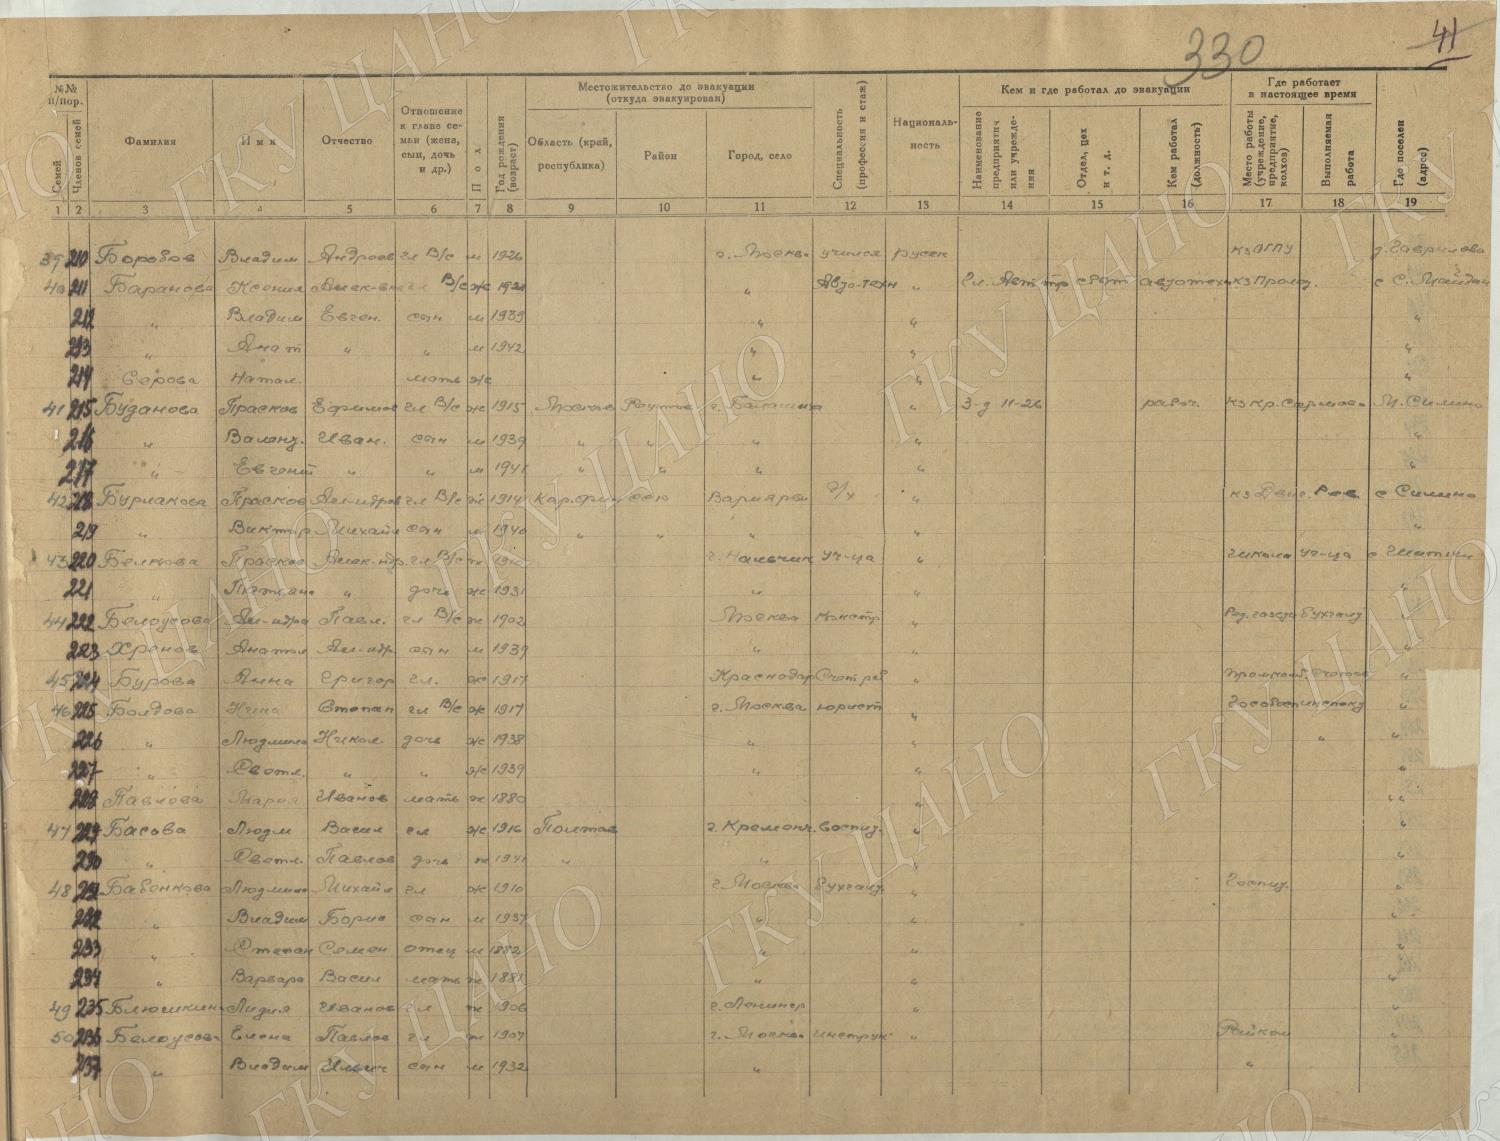 330
41
№№ п/пор.
Семей
Членов семей
Фамилия
Имя
Отчество
Отношение к главе семьи (жена, сын, дочь и др.)
Пол
Год рождения (возраст)
Местожительство до эвакуации (откуда эвакуирован)
Область (край, республика)
Район
Город, село
Специальность (профессия и стаж)
Националь-ность
Кем и где работал до эвакуации
Наименование предприятия или учреждения
Отдел, цех и т. д.
Кем работал (должность)
Где работает в настоящее время
Место работы (учреждение, предприятие, колхоз)
Выполняемая работа
Где поселен (адрес)
1 2 3 4 5 6 7 8 9 10 11 12 13 14 15 16 17 18 19
39 210 Боровов Владим Андреев гл В/с м 1926 г. Москва учился русск кз ОГПУ д. Гаврилово
40 211 Баранова Ксения Алек-вна гл В/с ж 1921 " Авто-техн " автотехн с С. Майдан
212 " Владим Евген. сын м 1939 " " "
213 " Анат " " м 1942 " " "
214 Серова Натал. мать ж " " "
41 215 Буданова Прасков Ефимов гл В/с ж 1915 Москов Реутов г. Балашиха " З-д 11-26 рабоч. кз Кр. Сормово М. Силино
216 " Валент. Иван. сын м 1939 " " " " "
217 " Евгений " " м 1941 " " " " "
42 218 Бурлакова Прасков Ал-ндров гл В/с ж 1914 Кар. Фин ССР С/х " кз Двиг. Рев. с Силино
219 " Виктор Михайл сын м 1940 " " " " "
43 220 Белкова Прасков Алек-ндр. гл В/с ж г. Нальчик Уч-ца " школа Уч-ца с Шатки
221 " " дочь ж 1931 " " "
44 222 Белоусова Ал-ндра Павл. гл В/с ж 1902 Москва " Ред. газеты Бухгалт "
223 Хренов Анатол Ал-ндр. сын м 1939 " " "
45 224 Бурова Анна Григор гл. ж 1917 Краснодар " "
46 225 Болдова Нина Степан гл В/с ж 1917 г. Москва юрист " "
226 " Людмила Никол дочь ж 1938 " " " "
227 " Светл. " " ж 1939 " " "
228 Павлова Мария Иванов мать ж 1880 " "
47 229 Басова Людм Васил гл ж 1916 Полтав г. Кременч. воспит. " "
230 " Светл. Павлов дочь ж 1941 " " " "
48 231 Бабенкова Людмила Михайл гл ж 1910 г. Москва бухгалт. " Госпит. "
232 " Владим Борис сын м 1937 " " "
233 " Степан Семен отец м 1882 " " "
234 " Варвара Васил мать ж 1881 " " "
49 235 Блюшкина Лидия Иванов гл ж 1906 г. Ленингр " "
50 236 Белоусова Елена Павлов гл ж 1907 г. Москва инструк " Райком "
237 " Владим Ильич сын м 1932 " "
ГКУ ЦАНО